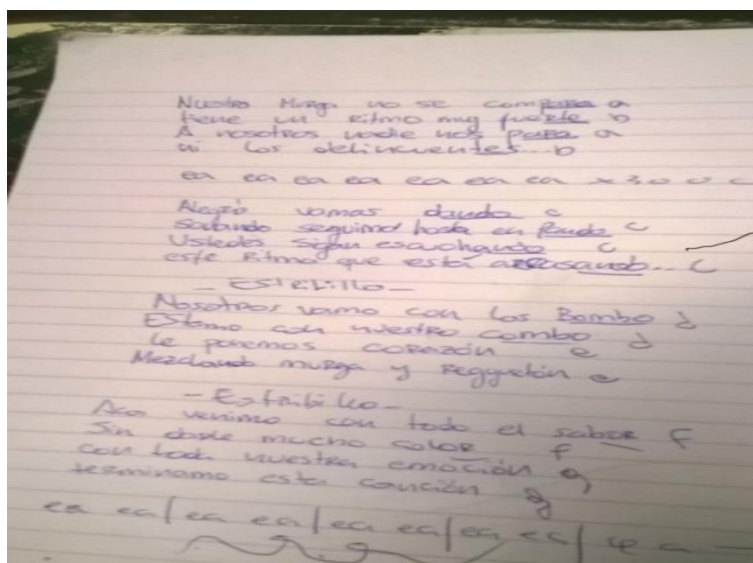 Nuestra Murga no se compara a
tiene un ritmo muy fuerte b
A nosotros nadie nos para a
ni los delincuentes... b
ea ea ea ea ea ea ea x3
Alegría vamos dando c
seguimo hasta en c
Ustedes sigan escuchando c
este Ritmo que está arrasando... c
- EstRibillo -
Nosotros vamo con los Bombo d
Estamo con nuestro combo d
le ponemos corazón e
Mezclando murga y Regguetón e
- Estribillo -
Aca venimo con todo el sabor f
Sin darle mucho color f
con toda nuestra emoción g
terminamo esta canción g
ea ea/ea ea/ea ea/ea ea/